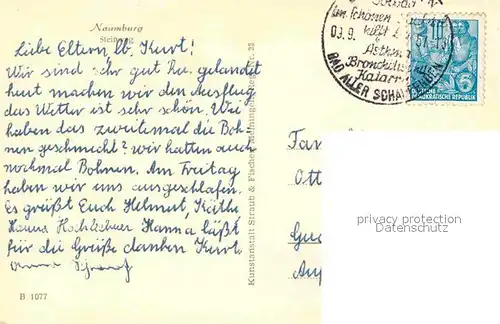 Naumburg
Steinweg
Liebe Eltern, lb. Kurt!
Wir sind sehr gut gelandet
heut machen wir den Ausflug
das Wetter ist sehr schön. Wie
haben das zweitemal die Boh-
nen geschmeckt? wir hatten auch
nochmal Bohnen. Am Freitag
haben wir uns ausgeschlafen.
Es grüßt Euch Helmut, Käthe
Hanna läßt
für die Grüße danken Kurt.
B 1077
Kunstanstalt Straub & Fischer, Meiningen
im schönen
hilft
09.9.
57
Asthma
Bronchitis
Katarrh
BAD
SCHA
10
6
DEUTSCHE
DEMOKRATISCHE REPUBLIK
Fam
Ott
privacy protection
Datenschutz